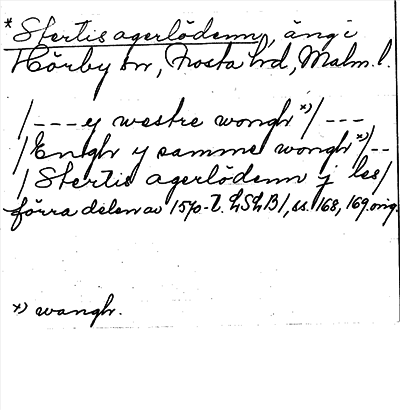 * Stertis agerlödenn, äng i
Hörby sn, Frosta hd, Malm. l.
/--- y westre wongh *)/---,
/Engh y samme wongh *)/--
/Stertis agerlödenn j les/
förra delen av 1570-t. LSLB/, ss. 168, 169 orig.
*) wangh.